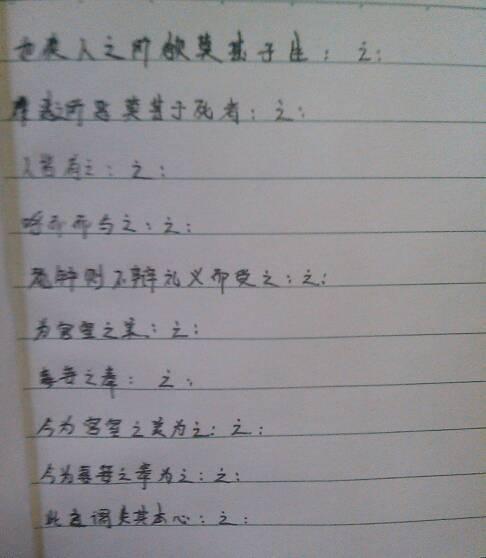 如使人之所欲莫甚于生：之：
使人之所恶莫甚于死者：之：
人皆有之：之：
呼尔而与之：之：
万钟则不辩礼义而受之：之：
为宫室之美：之：
妻妾之奉：之：
今为宫室之美为之：之：
今为妻妾之奉为之：之：
此之谓失其本心：之：